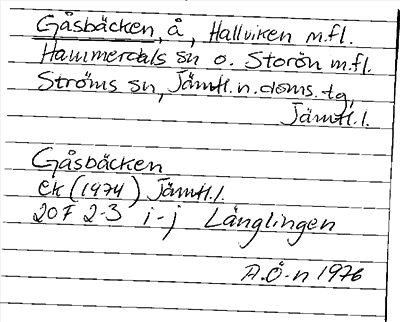 Gåsbäcken, å, Hallviken m.fl.
Hammerdals sn o. Storön m.fl.
Ströms sn, Jämtl.n.doms.tg,
Jämtl.l.
Gåsbäcken
ek (1974) Jämtl.l.
20F 2-3 i-j Länglingen
A.Ö-n 1976